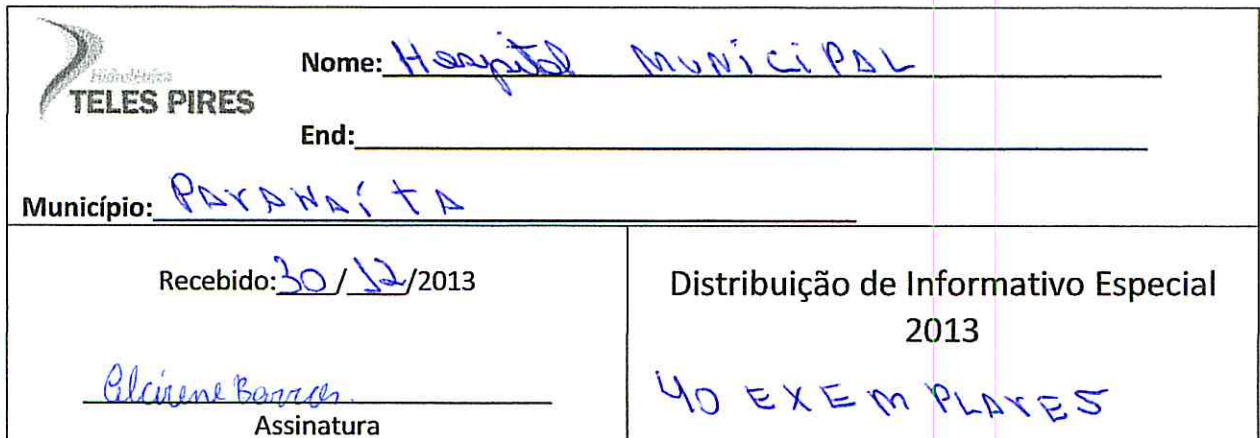 Hidrelétrica
TELES PIRES
Nome: Hospital MUNiCiPAL
End:
Município: PArANAíTA
Recebido: 30/12/2013
Alcirene Barros
Assinatura
Distribuição de Informativo Especial
2013
40 EXEMPLArES